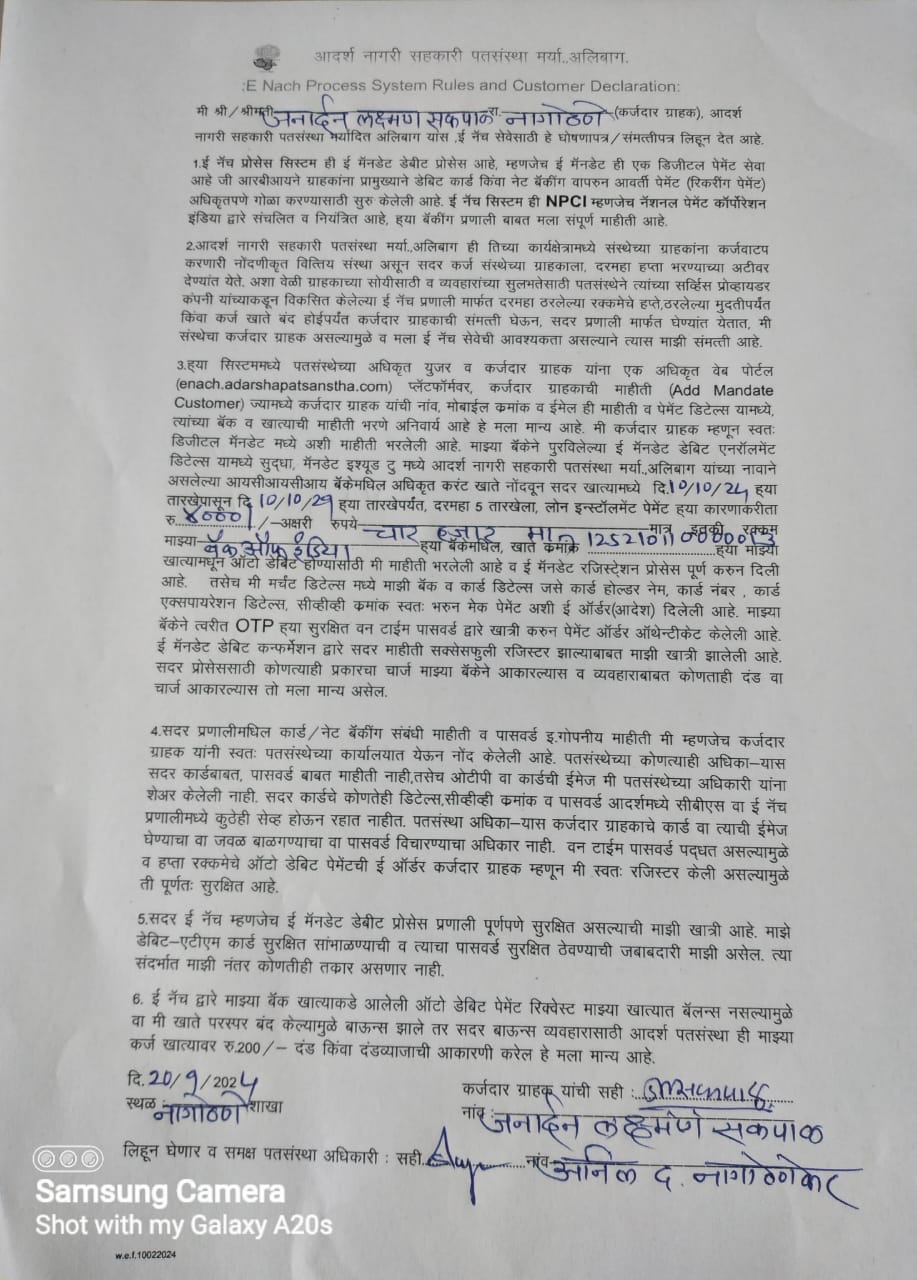 आदर्श नागरी सहकारी पतसंस्था मर्या.,अलिबाग.
:E Nach Process System Rules and Customer Declaration:
मी श्री/श्रीमती जनार्दन लक्ष्मण सकपाळ रा. नागोठणे (कर्जदार ग्राहक), आदर्श
नागरी सहकारी पतसंस्था मर्यादित अलिबाग यांस ,ई नॅच सेवेसाठी हे घोषणापत्र/संमतीपत्र लिहून देत आहे.
1.ई नॅच प्रोसेस सिस्टम ही ई मॅनडेट डेबीट प्रोसेस आहे, म्हणजेच ई मॅनडेट ही एक डिजीटल पेमेंट सेवा
आहे जी आरबीआयने ग्राहकांना प्रामुख्याने डेबिट कार्ड किंवा नेट बॅकींग वापरुन आवर्ती पेमेंट (रिकरींग पेमेंट)
अधिकृतपणे गोळा करण्यासाठी सुरु केलेली आहे. ई नॅच सिस्टम ही NPCI म्हणजेच नॅशनल पेमेंट कॉर्पोरेशन
इंडिया द्वारे संचलित व नियंत्रित आहे, हया बॅकींग प्रणाली बाबत मला संपूर्ण माहीती आहे.
2.आदर्श नागरी सहकारी पतसंस्था मर्या.,अलिबाग ही तिच्या कार्यक्षेत्रामध्ये संस्थेच्या ग्राहकांना कर्जवाटप
करणारी नोंदणीकृत वित्तिय संस्था असून सदर कर्ज संस्थेच्या ग्राहकाला, दरमहा हप्ता भरण्याच्या अटीवर
देण्यांत येते. अशा वेळी ग्राहकाच्या सोयीसाठी व व्यवहारांच्या सुलभतेसाठी पतसंस्थेने त्यांच्या सर्व्हिस प्रोव्हायडर
कंपनी यांच्याकडून विकसित केलेल्या ई नॅच प्रणाली मार्फत दरमहा ठरलेल्या रक्कमेचे हप्ते,ठरलेल्या मुदतीपर्यंत
किंवा कर्ज खाते बंद होईपर्यंत कर्जदार ग्राहकाची संमत्ती घेऊन, सदर प्रणाली मार्फत घेण्यांत येतात, मी
संस्थेचा कर्जदार ग्राहक असल्यामुळे व मला ई नॅच सेवेची आवश्यकता असल्याने त्यास माझी संमत्ती आहे.
3.हया सिस्टममध्ये पतसंस्थेच्या अधिकृत युजर व कर्जदार ग्राहक यांना एक अधिकृत वेब पोर्टल
(enach.adarshapatsanstha.com) प्लॅटफॉर्मवर, कर्जदार ग्राहकाची माहीती (Add Mandate
Customer) ज्यामध्ये कर्जदार ग्राहक यांची नांव, मोबाईल क्रमांक व ईमेल ही माहीती व पेमेंट डिटेल्स यामध्ये,
त्यांच्या बॅक व खात्याची माहीती भरणे अनिवार्य आहे हे मला मान्य आहे. मी कर्जदार ग्राहक म्हणून स्वतः
डिजीटल मॅनडेट मध्ये अशी माहीती भरलेली आहे. माझ्या बॅकेने पुरविलेल्या ई मॅनडेट डेबिट एनरॉलमेंट
डिटेल्स यामध्ये सुद्धा, मॅनडेट इश्यूड टु मध्ये आदर्श नागरी सहकारी पतसंस्था मर्या.,अलिबाग यांच्या नावाने
असलेल्या आयसीआयसीआय बॅकेमधिल अधिकृत करंट खाते नोंदवून सदर खात्यामध्ये दि.10/10/24 हया
तारखेपासून दि 10/10/29 हया तारखेपर्यंत, दरमहा 5 तारखेला, लोन इन्स्टॉलमेंट पेमेंट हया कारणाकरीता
रु. 4000/-अक्षरी रुपये चार हजार मात्र मात्र इतकी रक्कम
माझ्या बँक ऑफ इंडिया हया बॅकेमधिल, खाते क्रमांक हया माझ्या
खात्यामधून ऑटो डेबिट होण्यासाठी मी माहीती भरलेली आहे व ई मॅनडेट रजिस्ट्रेशन प्रोसेस पूर्ण करुन दिली
आहे. तसेच मी मर्चंट डिटेल्स मध्ये माझी बॅक व कार्ड डिटेल्स जसे कार्ड होल्डर नेम, कार्ड नंबर , कार्ड
एक्सपायरेशन डिटेल्स, सीव्हीव्ही क्रमांक स्वतः भरुन मेक पेमेंट अशी ई ऑर्डर(आदेश) दिलेली आहे. माझ्या
बॅकेने त्वरीत OTP हया सुरक्षित वन टाईम पासवर्ड द्वारे खात्री करुन पेमेंट ऑर्डर ऑथेन्टीकेट केलेली आहे.
ई मॅनडेट डेबिट कन्फर्मेशन द्वारे सदर माहीती सक्सेसफुली रजिस्टर झाल्याबाबत माझी खात्री झालेली आहे.
सदर प्रोसेससाठी कोणत्याही प्रकारचा चार्ज माझ्या बॅकेने आकारल्यास व व्यवहाराबाबत कोणताही दंड वा
चार्ज आकारल्यास तो मला मान्य असेल.
4.सदर प्रणालीमधिल कार्ड/नेट बॅकींग संबंधी माहीती व पासवर्ड इ.गोपनीय माहीती मी म्हणजेच कर्जदार
ग्राहक यांनी स्वतः पतसंस्थेच्या कार्यालयात येऊन नोंद केलेली आहे. पतसंस्थेच्या कोणत्याही अधिका-यास
सदर कार्डबाबत, पासवर्ड बाबत माहीती नाही,तसेच ओटीपी वा कार्डची ईमेज मी पतसंस्थेच्या अधिकारी यांना
शेअर केलेली नाही. सदर कार्डचे कोणतेही डिटेल्स,सीव्हीव्ही क्रमांक व पासवर्ड आदर्शमध्ये सीबीएस वा ई नॅच
प्रणालीमध्ये कुठेही सेव्ह होऊन रहात नाहीत. पतसंस्था अधिका-यास कर्जदार ग्राहकाचे कार्ड वा त्याची ईमेज
घेण्याचा वा जवळ बाळगण्याचा वा पासवर्ड विचारण्याचा अधिकार नाही. वन टाईम पासवर्ड पद्धत असल्यामुळे
व हप्ता रक्कमेचे ऑटो डेबिट पेमेंटची ई ऑर्डर कर्जदार ग्राहक म्हणून मी स्वतः रजिस्टर केली असल्यामुळे
ती पूर्णतः सुरक्षित आहे.
5.सदर ई नॅच म्हणजेच ई मॅनडेट डेबीट प्रोसेस प्रणाली पूर्णपणे सुरक्षित असल्याची माझी खात्री आहे. माझे
डेबिट-एटीएम कार्ड सुरक्षित सांभाळण्याची व त्याचा पासवर्ड सुरक्षित ठेवण्याची जबाबदारी माझी असेल. त्या
संदर्भात माझी नंतर कोणतीही तक्रार असणार नाही.
6. ई नॅच द्वारे माझ्या बॅक खात्याकडे आलेली ऑटो डेबिट पेमेंट रिक्वेस्ट माझ्या खात्यात बॅलन्स नसल्यामुळे
वा मी खाते परस्पर बंद केल्यामुळे बाऊन्स झाले तर सदर बाऊन्स व्यवहारासाठी आदर्श पतसंस्था ही माझ्या
कर्ज खात्यावर रु.200/- दंड किंवा दंडव्याजाची आकारणी करेल हे मला मान्य आहे.
दि. 20/9/2024
कर्जदार ग्राहक यांची सही :
स्थळ : नागोठणे शाखा
नांव : जनार्दन लक्ष्मण सकपाळ
लिहून घेणार व समक्ष पतसंस्था अधिकारी : सही नांव अनिल द. नागोठणेकर
Samsung Camera
Shot with my Galaxy A20s
w.e.f.10022024